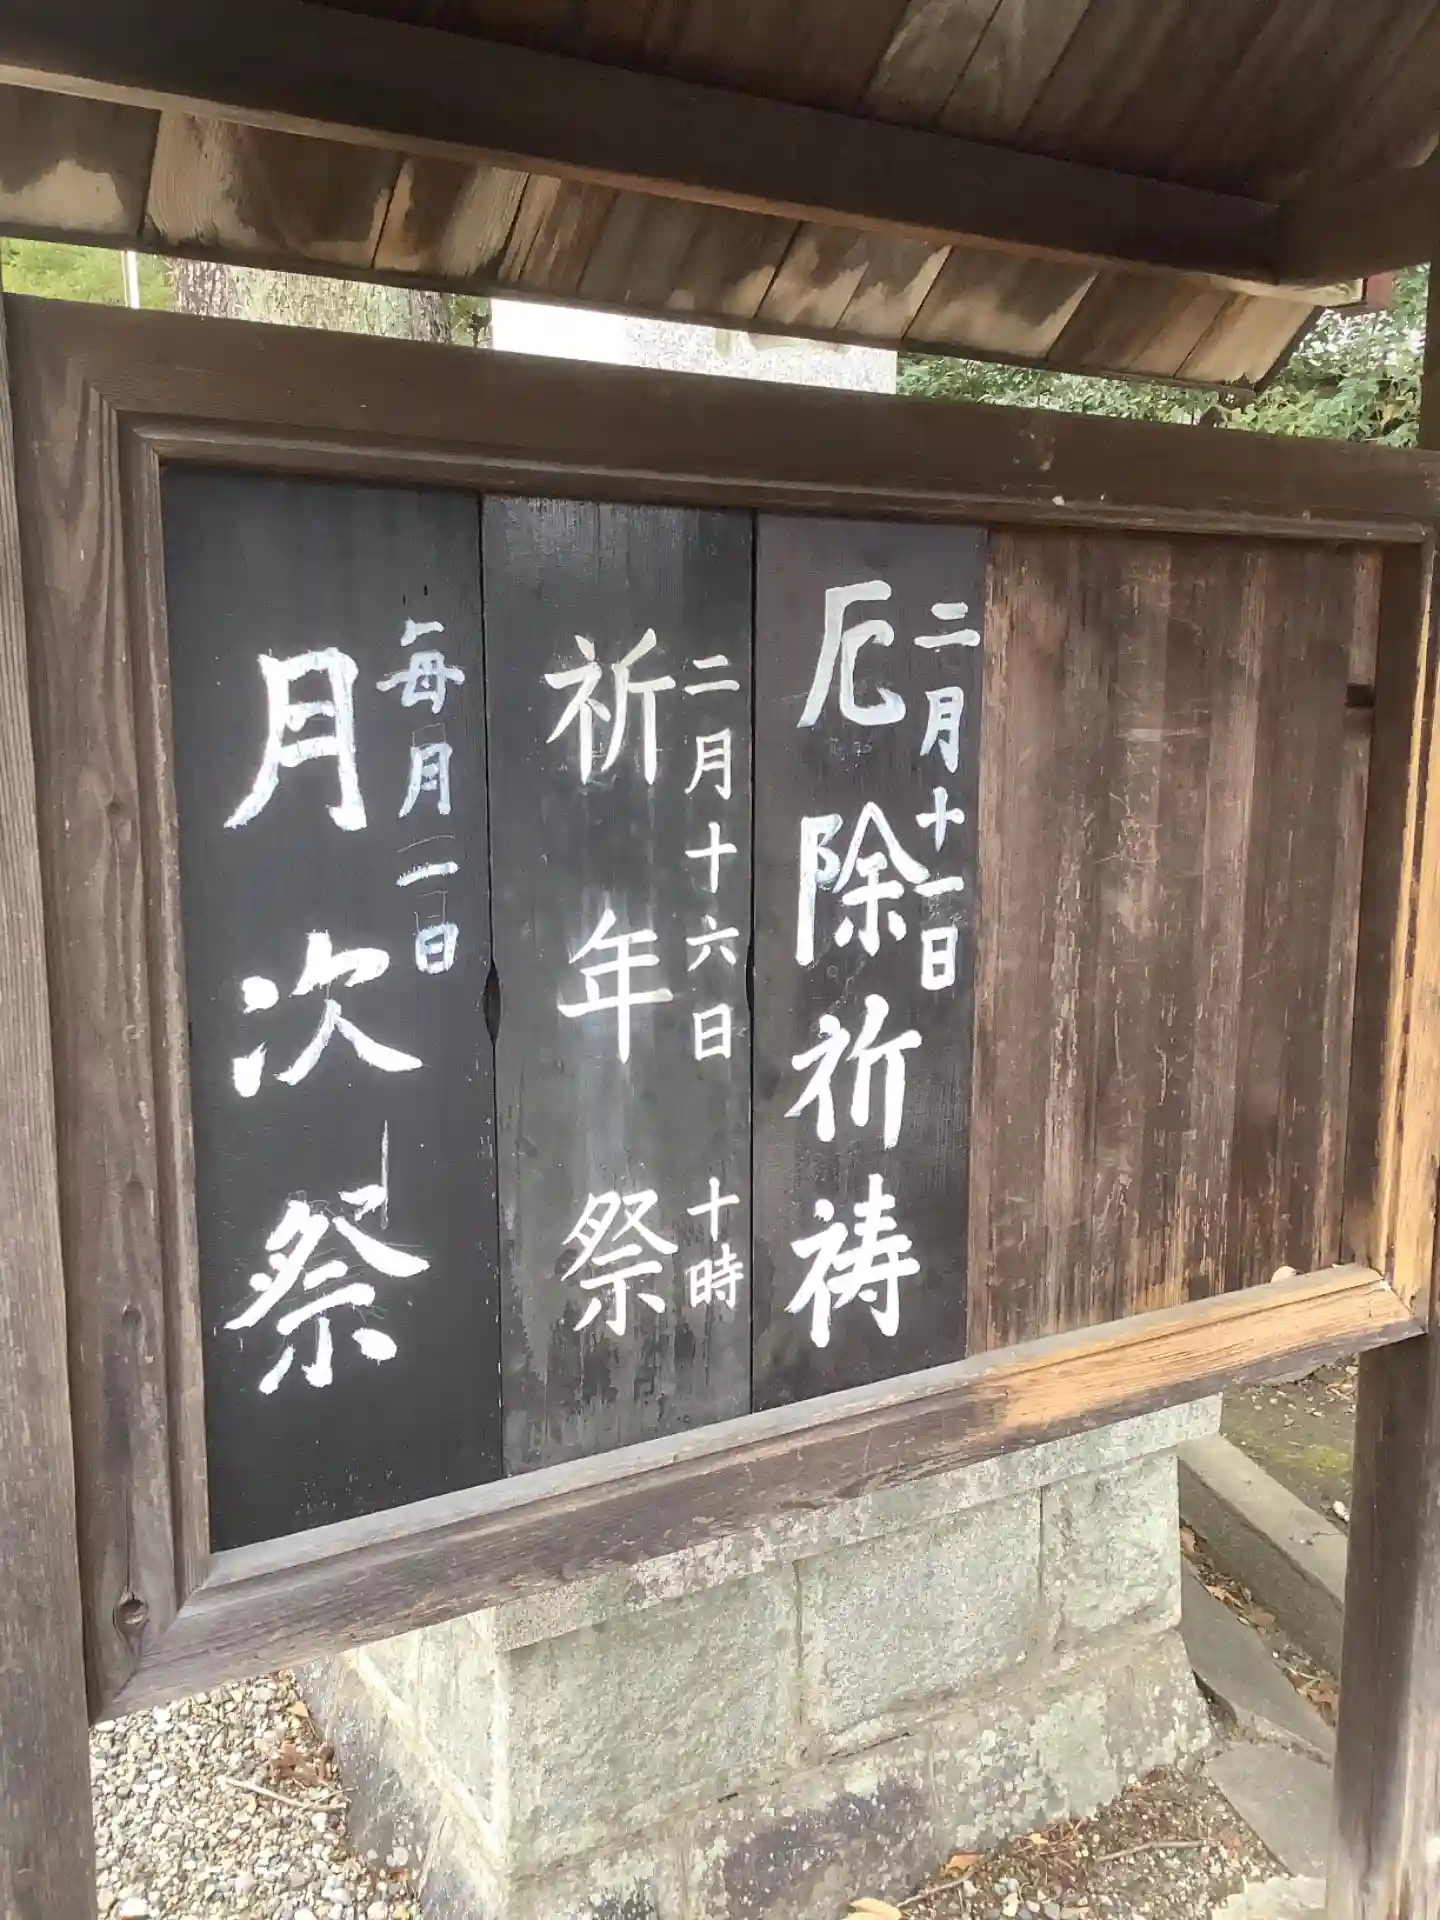 二月十一日
厄除祈祷
二月十六日 十時
祈年祭
毎月一日
月次祭